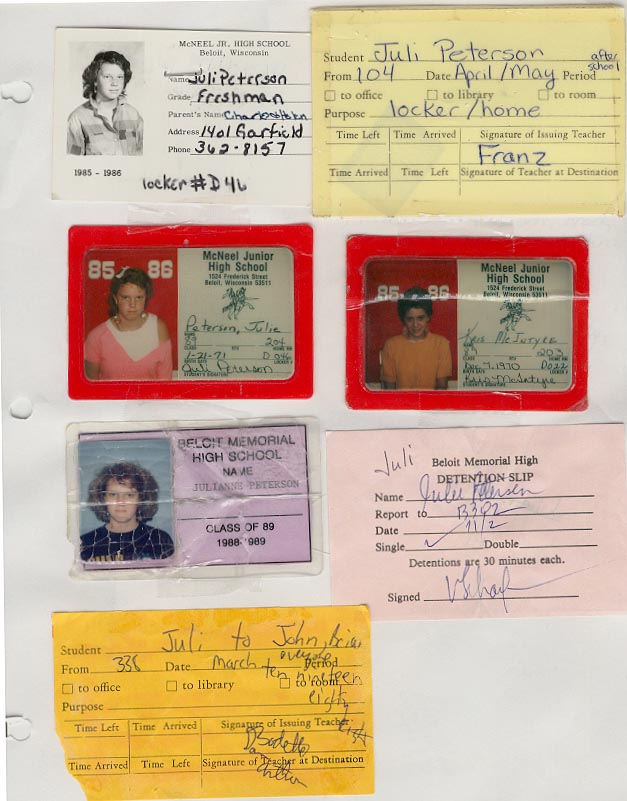 McNEEL JR. HIGH SCHOOL
Beloit, Wisconsin
Name Juli Peterson
Grade Freshman
Parent's Name
Address 1401 Garfield
Phone 362-8157
1985 - 1986
locker #D46
Student Juli Peterson
after school
From 104 Date April/May Period
to office to library to room
Purpose locker/home
Time Left Time Arrived Signature of Issuing Teacher
Franz
Time Arrived Time Left Signature of Teacher at Destination
85 86
McNeel Junior
High School
1524 Frederick Street
Beloit, Wisconsin 53511
Peterson, Julie
89 204
1-21-71 D046
BIRTH DATE LOCKER #
Juli Peterson
STUDENT'S SIGNATURE
85 86
McNeel Junior
High School
1524 Frederick Street
Beloit, Wisconsin 53511
Kris McIntyre
89 203
Dec. 7, 1970 D022
BIRTH DATE LOCKER #
Kris McIntyre
STUDENT'S SIGNATURE
BELOIT MEMORIAL
HIGH SCHOOL
NAME
JULIANNE PETERSON
CLASS OF 89
1988-1989
Juli
Beloit Memorial High
DETENTION SLIP
Name Julie Peterson
Report to B302
Date 11/2
Single Double
Detentions are 30 minutes each.
Signed
Student Juli to John, Brian
everyone
From 338 Date March ten nineteen eighty Period
to office to library to room
Purpose
Time Left Time Arrived Signature of Issuing Teacher
Time Arrived Time Left Signature of Teacher at Destination